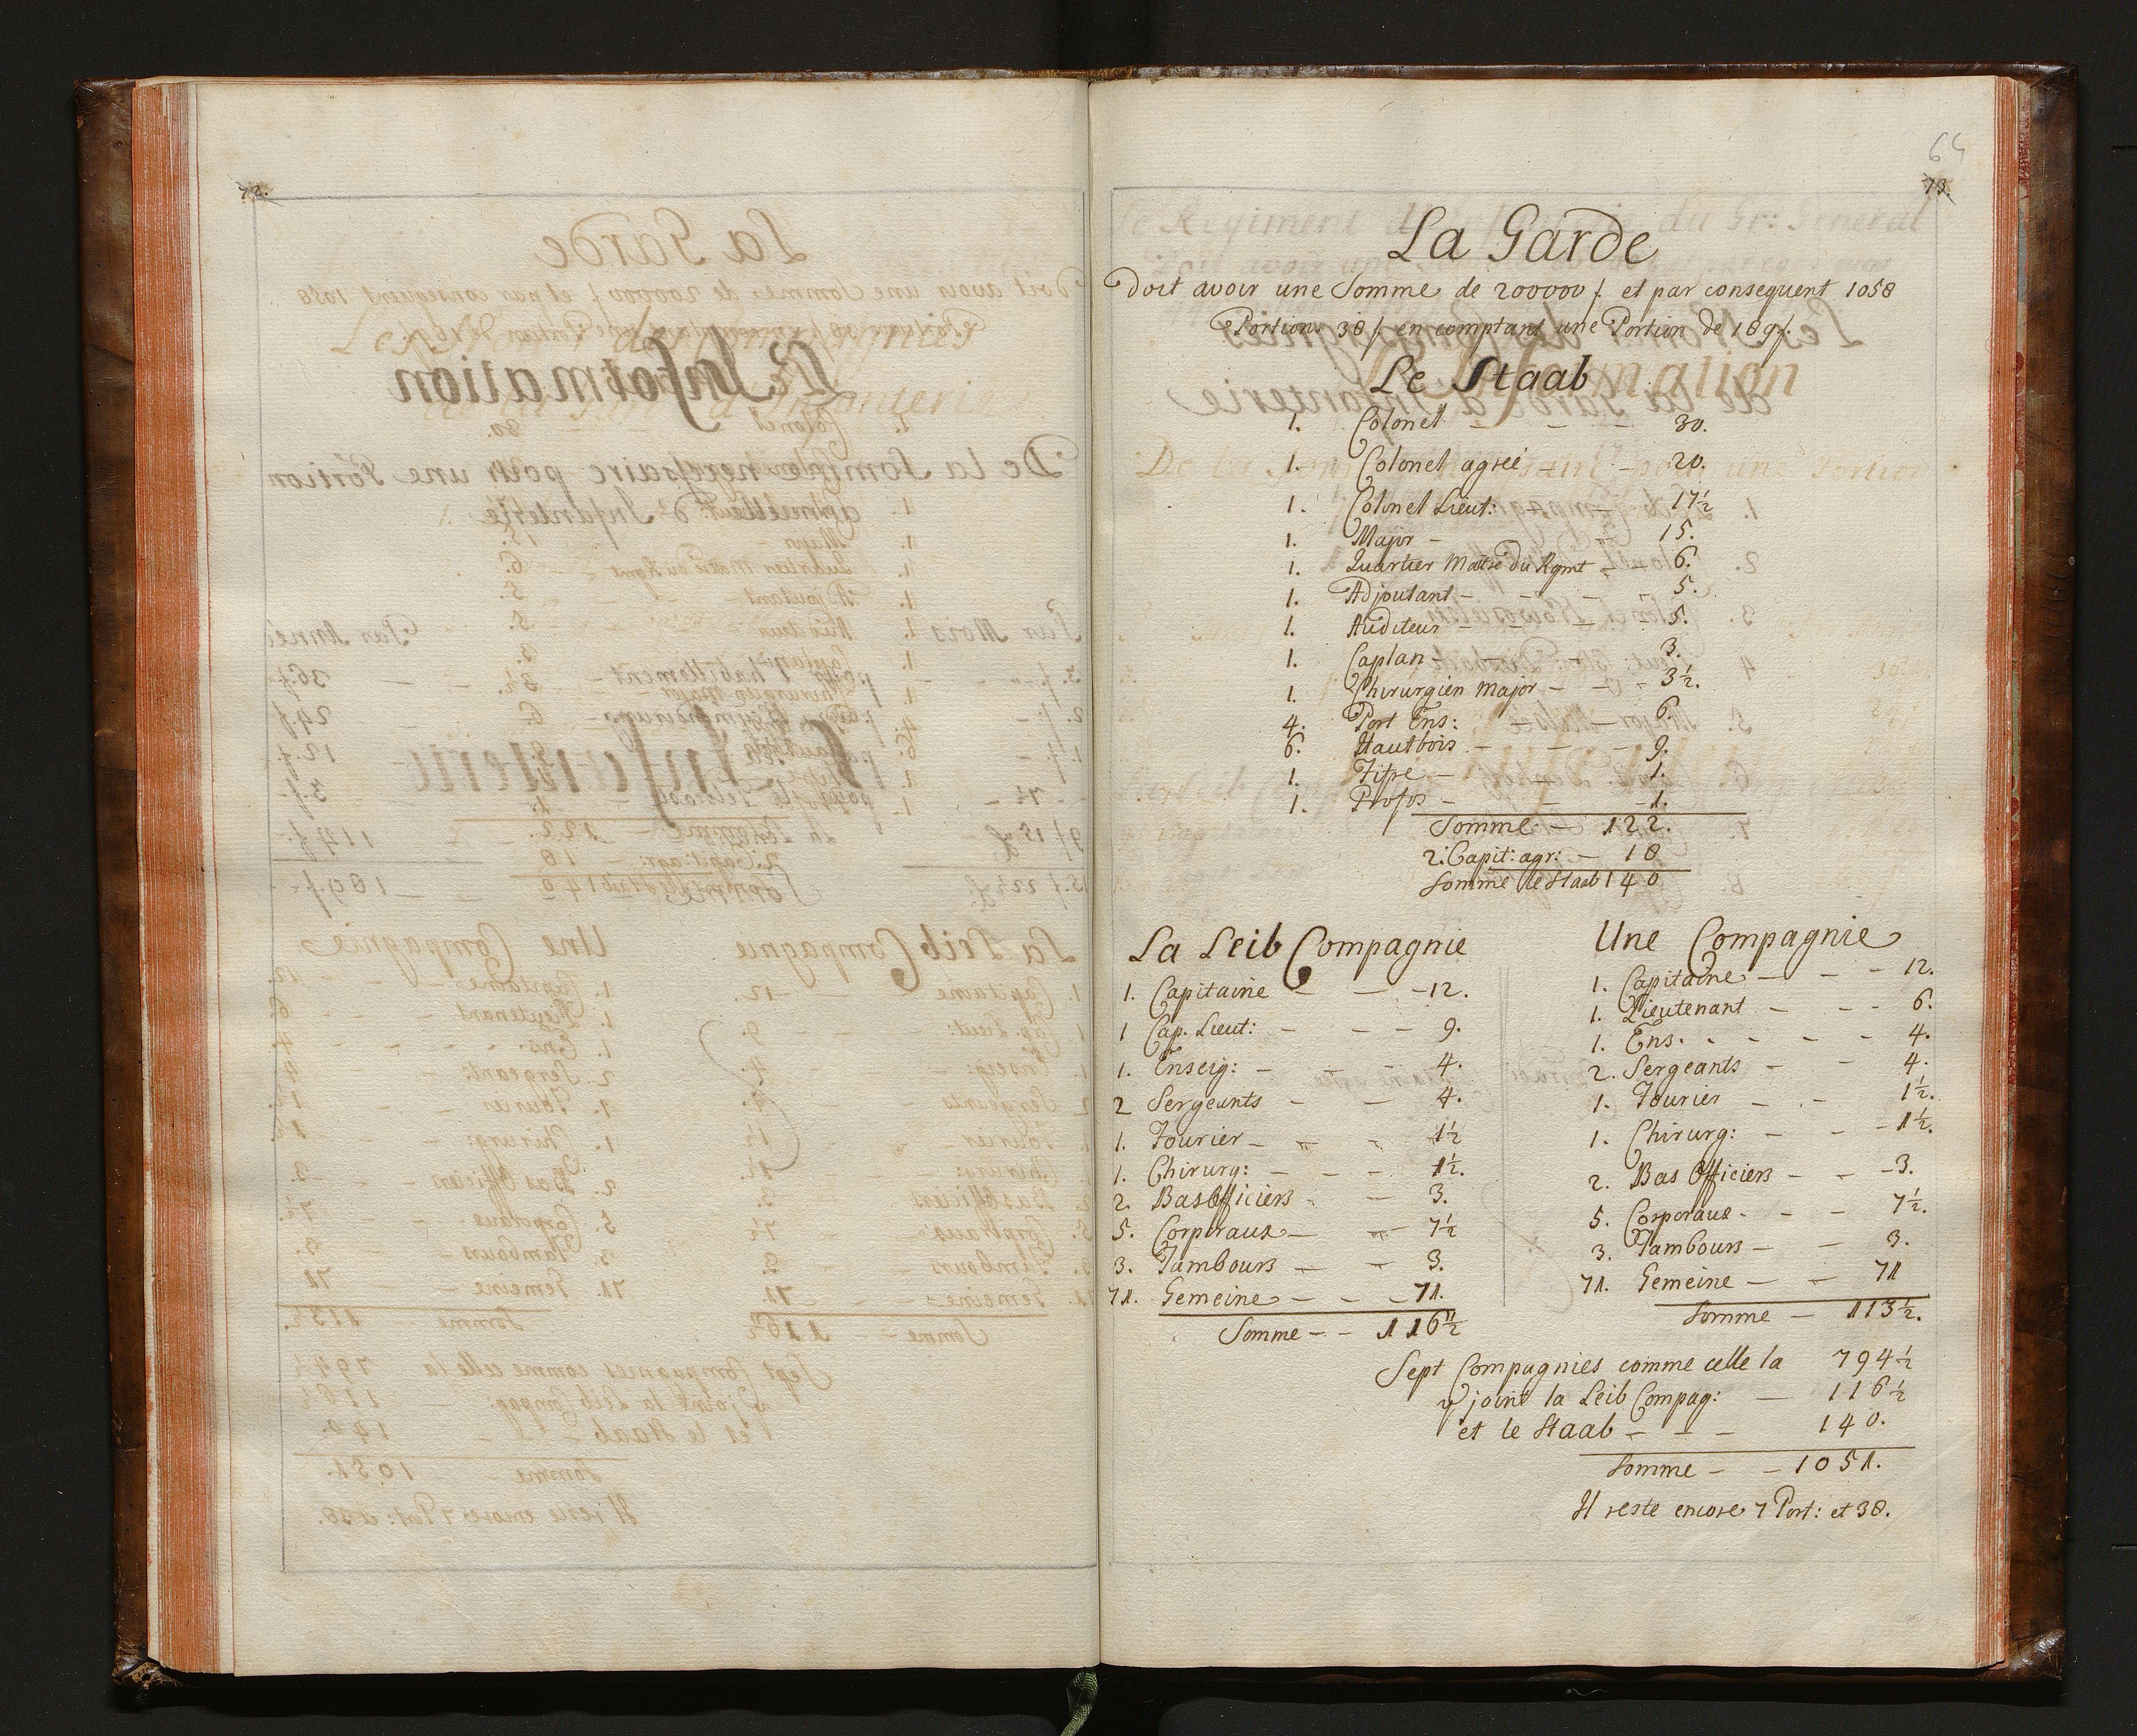 72.
64
73.
La Garde
Doit avoir une Somme de 200000 f. et par consequent 1058
Portions 38 f. en comptant une Portion de 189 f.
Le Staab
1. Colonel - - - 30.
1. Colonel agreé - - 20.
1. Colonel Lieut: - - 17½
1. Major - - 15.
1. Quartier Maitre du Rgmt - 6.
1. Adjoutant - - - - 5.
1. Auditeur - - - - 5.
1. Caplan - - - 3.
1. Chirurgien Major - - - 3½.
4. Port Ens: 6.
6. Hautbois - - - 9.
1. Fifre - - 1.
1. Profos - - - 1.
Somme - 122.
2. Capit: agr: - 18
Somme le Staab 140
La Leib Compagnie
1. Capitaine - - - 12.
1 Cap. Lieut: - - - 9.
1. Enseig: - - - 4.
2 Sergeants - - 4.
1. Fourier - - - 1½
1. Chirurg: - - - 1½.
2. Bas Officiers - - 3.
5. Corporaux - - 7½
3. Tambours - - 3.
71. Gemeine - - - 71.
Somme - - 116½
Une Compagnie
1. Capitaine - - - 12.
1. Lieutenant - - - 6.
1. Ens. - - - - 4.
2. Sergeants - - 4.
1. Fourier - - 1½.
1. Chirurg: - - - 1½.
2. Bas Officiers - - - 3.
5. Corporaux - - - 7½.
3. Tambours - - 3.
71. Gemeine - - 71
Somme - 113½.
Sept Compagnies comme celle la 794½
y joint la Leib Compag: - 116½
et le Staab - - - 140.
Somme - - 1051.
Il reste encore 7 Port: et 38.